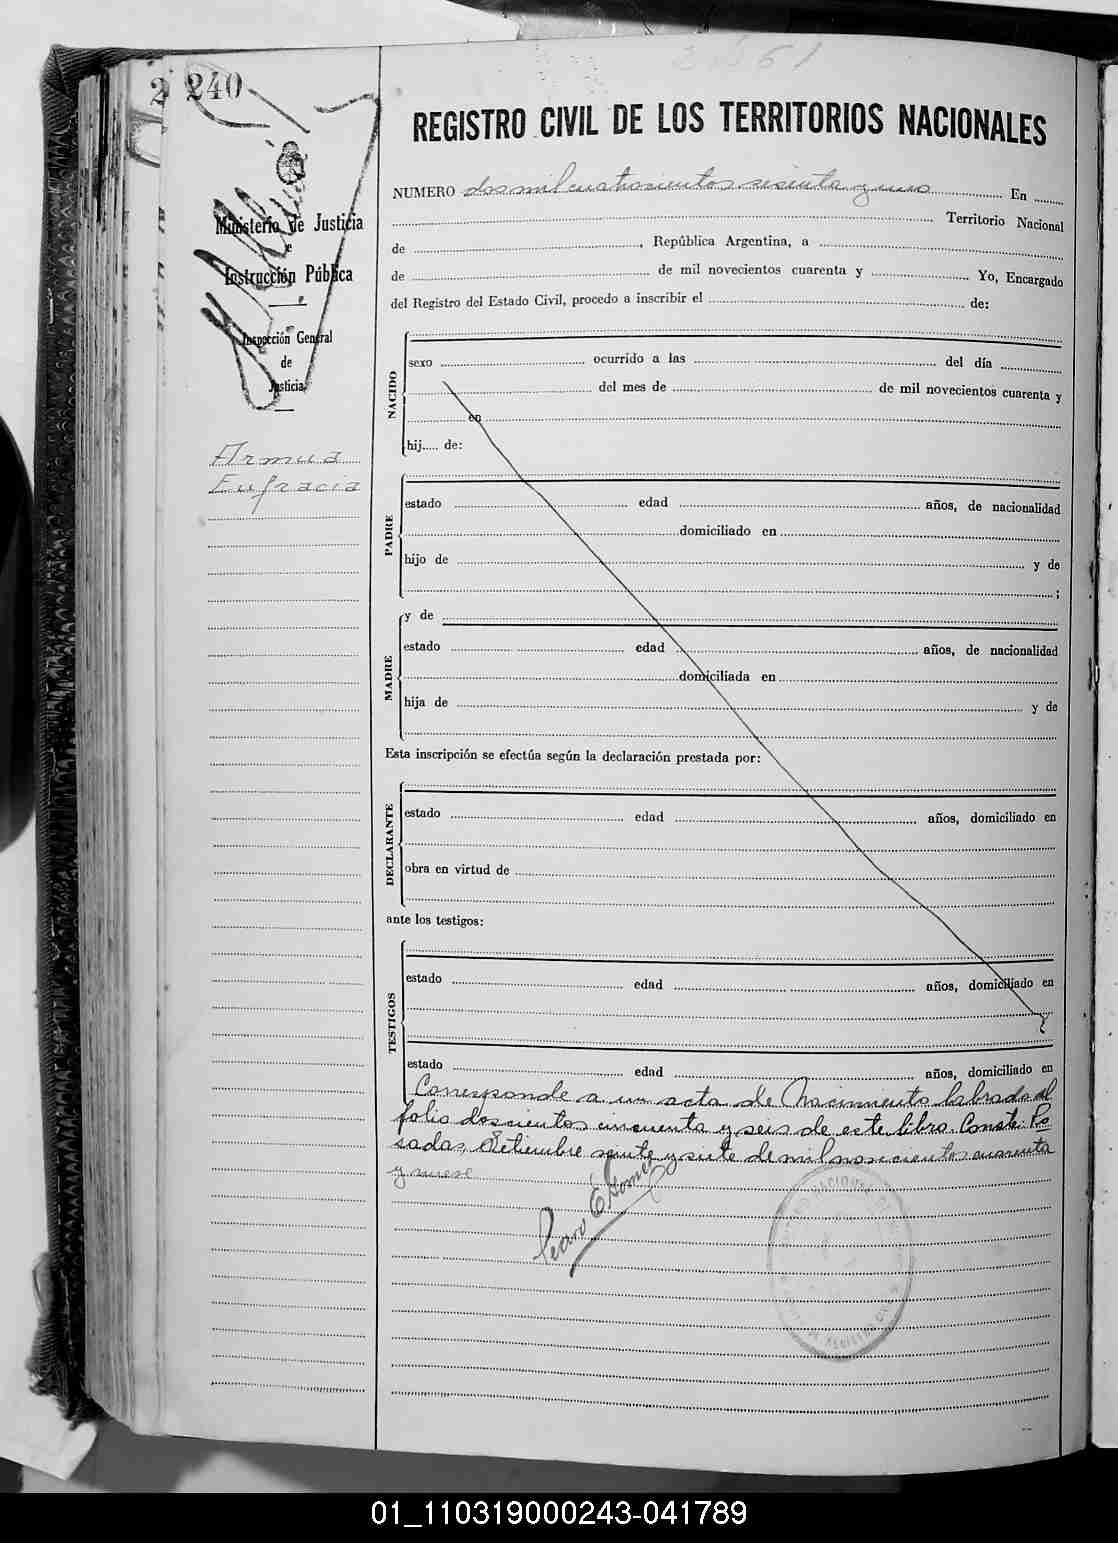 240
2461
REGISTRO CIVIL DE LOS TERRITORIOS NACIONALES
Ministerio de Justicia
e
Instrucción Pública
Inspección General
de
Justicia
Armua
Eufracia
NUMERO dos mil cuatrocientos sesenta y uno En
Territorio Nacional
de , República Argentina, a
de de mil novecientos cuarenta y Yo, Encargado
del Registro del Estado Civil, procedo a inscribir el de:
NACIDO
sexo ocurrido a las del día
del mes de de mil novecientos cuarenta y
en
hij..... de:
PADRE
estado edad años, de nacionalidad
domiciliado en
hijo de y de
;
MADRE
y de
estado edad años, de nacionalidad
domiciliada en
hija de y de
Esta inscripción se efectúa según la declaración prestada por:
DECLARANTE
estado edad años, domiciliado en
obra en virtud de
ante los testigos:
TESTIGOS
estado edad años, domiciliado en
estado edad años, domiciliado en
Corresponde a un acta de Nacimiento labrada al
folio doscientos cincuenta y seis de este libro. Conste: Po
sadas, Setiembre veinte y siete de mil novecientos cuarenta
y nueve
01_110319000243-041789